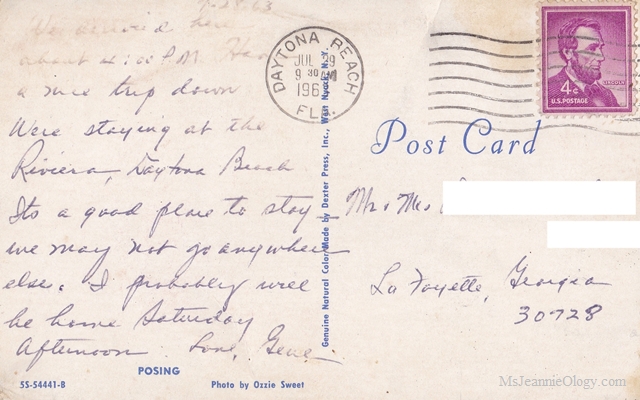 7-28-63
We arrived here
about 2:00 P.M. Had
a nice trip down
Were staying at the
Riviera, Daytona Beach
Its a good place to stay -
we may not go anywhere
else. I probably will
be home Saturday
afternoon. Love, Gene.
POSING
5S-54441-B
Photo by Ozzie Sweet
Genuine Natural Color Made by Dexter Press, Inc., West Nyack, N.Y.
DAYTONA BEACH
JUL 29
9 30 AM
196
FLA.
4¢
LINCOLN
U.S. POSTAGE
Post Card
Mr & Mrs
La Fayette, Georgia
30728
MsJeannieOlogy.com